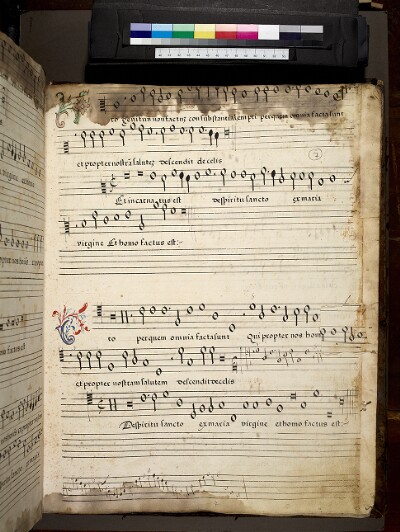 to genitum non factus consubstantialem patri per quem omnia facta sunt
et propter nostrā salutez descendit de celis
Et incarnatus est despiritu sancto ex maria
virgine Et homo factus est:
to per quem omnia facta sunt Qui propter nos hom
et propter nostram salutem descendit de celis
Despiritu sancto ex maria virgine et homo factus est